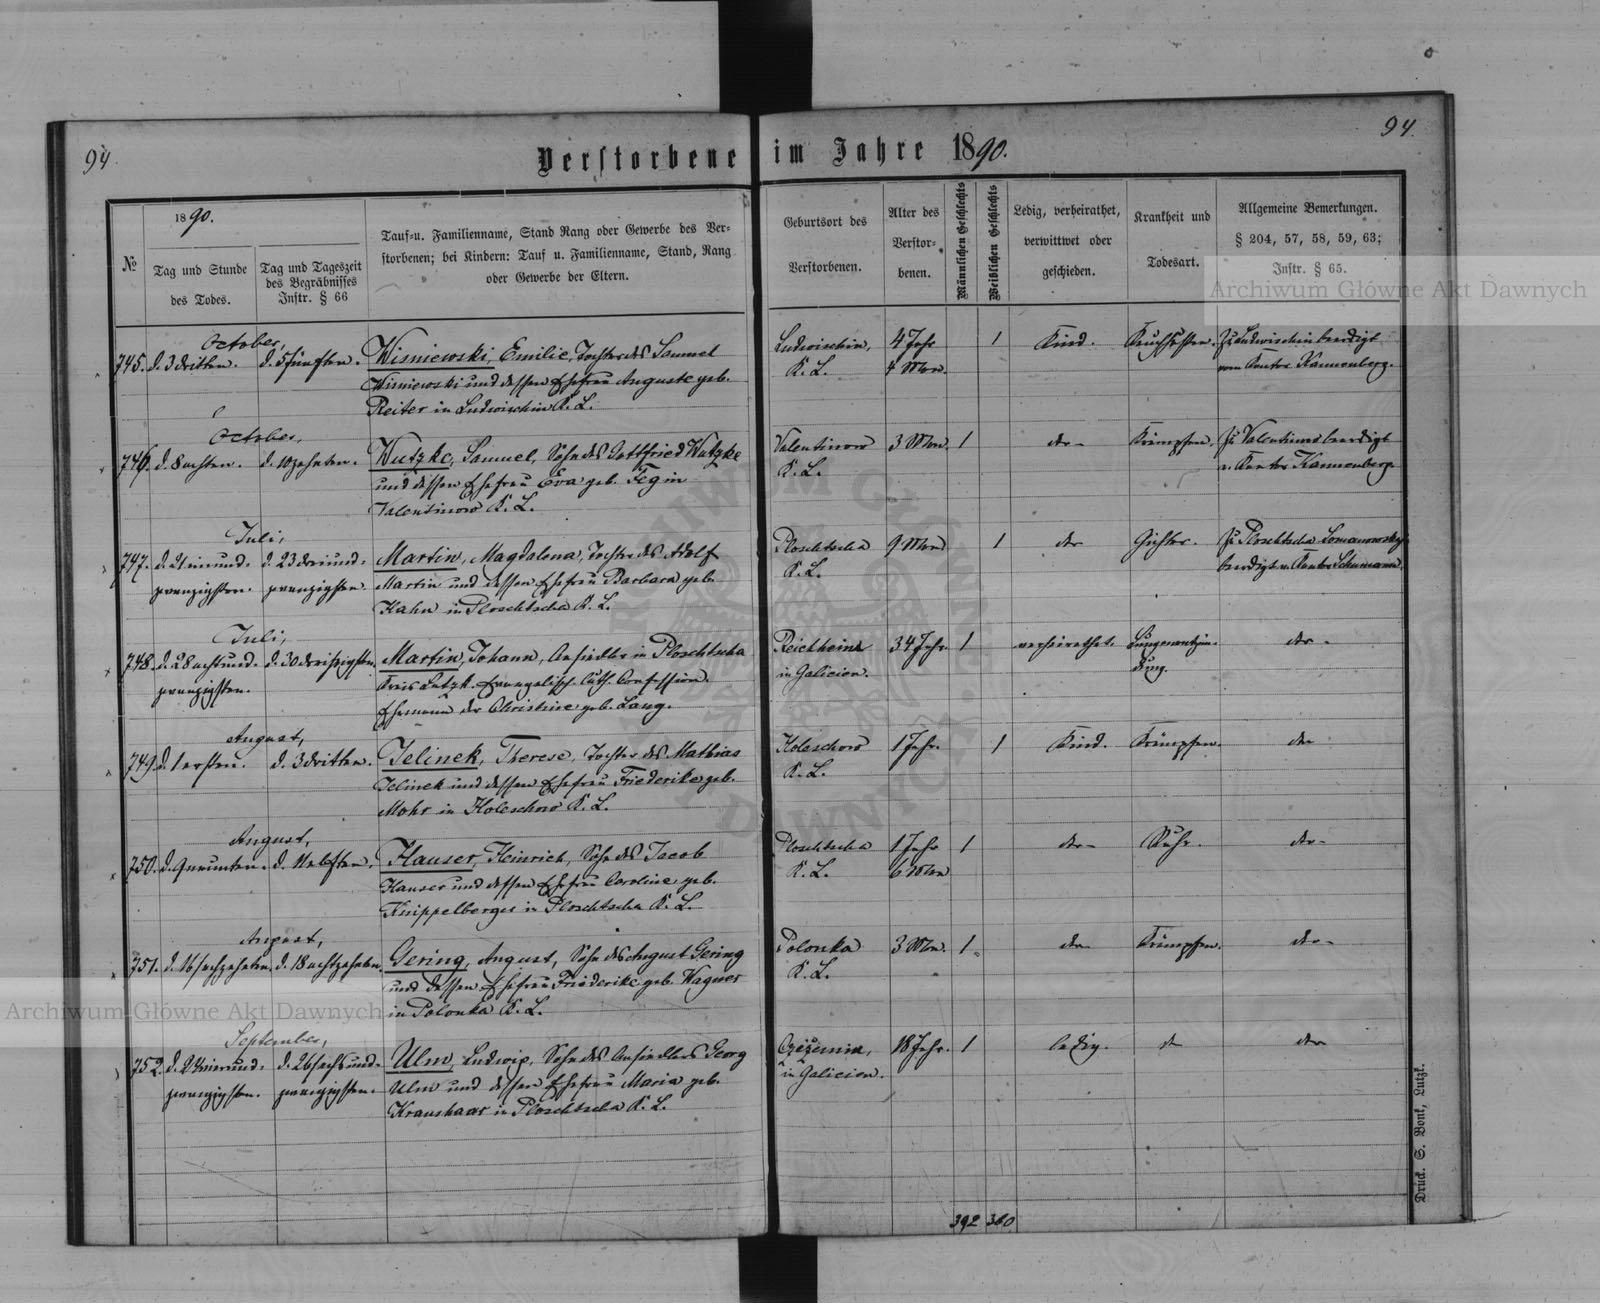 94.
94.
Verstorbene im Jahre 1890.
№
1890.
Tag und Stunde
des Todes.
Tag und Tageszeit
des Begräbnisses
Instr. § 66
Tauf-u. Familienname, Stand Rang oder Gewerbe des Ver-
storbenen; bei Kindern: Tauf u. Familienname, Stand, Rang
oder Gewerbe der Eltern.
Geburtsort des
Verstorbenen.
Alter des
Verstor-
benen.
Männlichen Geschlechts
Weiblichen Geschlechts
Ledig, verheirathet,
verwittwet oder
geschieden.
Krankheit und
Todesart.
Allgemeine Bemerkungen.
§ 204, 57, 58, 59, 63;
Instr. § 65.
Archiwum Główne Akt Dawnych
October,
745. d. 3 dritten. d. 5 fünften. Wisniewski, Emilie, Tochter des Samuel
Wisniewski und dessen Ehefrau Auguste geb.
Reiter in Ludwischin K. L.
Ludwischin, 4 Jahr 1 Kind. Keuchhusten. Zu Ludwischin beerdigt
K. L. 4 Mon. vom Kantor Kannenberg.
October,
746. d. 8 achten. d. 10 zehnten. Wutzke, Samuel, Sohn des Gottfried Wutzke
und dessen Ehefrau Eva geb. Fegin
Valentinow K. L.
Valentinow 3 Mon. 1 Krämpfen. Zu Valentinow beerdigt
K. L. v. Kantor Kannenberg.
Juli,
747. d. 21 einund- d. 23 dreiund- Martin, Magdalena, Tochter des Adolf
zwanzigsten. zwanzigsten. Martin und dessen Ehefrau Barbara geb.
Kahn in Ploschtscha K. L.
Ploschtscha 9 Mon 1 Gichter. Zu Ploschtscha
K. L. beerdigt v. Kantor Schumann.
Juli,
748. d. 28 achtund- d. 30 dreißigsten. Martin, Johann, Ansiedler in Ploschtscha
zwanzigsten. Kreis Lutzk. Evangelisch-Luth. Confession.
Ehemann der Christine geb. Lang.
Reichheim 34 Jahr. 1 verheirathet. Lungenentzün-
in Galicien. dung.
August,
749. d. 1 ersten. d. 3 dritten. Jelinek, Therese, Tochter des Mathias
Jelinek und dessen Ehefrau Friederike geb.
Mohr in Holeschow K. L.
Holeschow 1 Jahr. 1 Kind. Krämpfen.
K. L.
August,
750. d. 9 neunten. d. 11 elften. Hauser, Heinrich, Sohn des Jacob
Hauser und dessen Ehefrau Caroline geb.
Knippelberger in Ploschtscha K. L.
Ploschtscha 1 Jahr 1 Ruhr.
K. L. 6 Mon
August,
751. d. 16 sechzehnten. d. 18 achtzehnten. Gering, August, Sohn des August Gering
und dessen Ehefrau Friederike geb. Wagner
in Polonka K. L.
Polonka 3 Mon. 1 Krämpfen.
K. L.
Archiwum Główne Akt Dawnych
September,
752. d. 24 vierund- d. 26 sechsund- Ulm, Ludwig, Sohn des Ansiedlers Georg
zwanzigsten. zwanzigsten. Ulm und dessen Ehefrau Maria geb.
Kraushaar in Ploschtscha K. L.
18 Jahr. 1 ledig.
in Galicien.
392 360
Druck. S. Bonk, Lutzk.